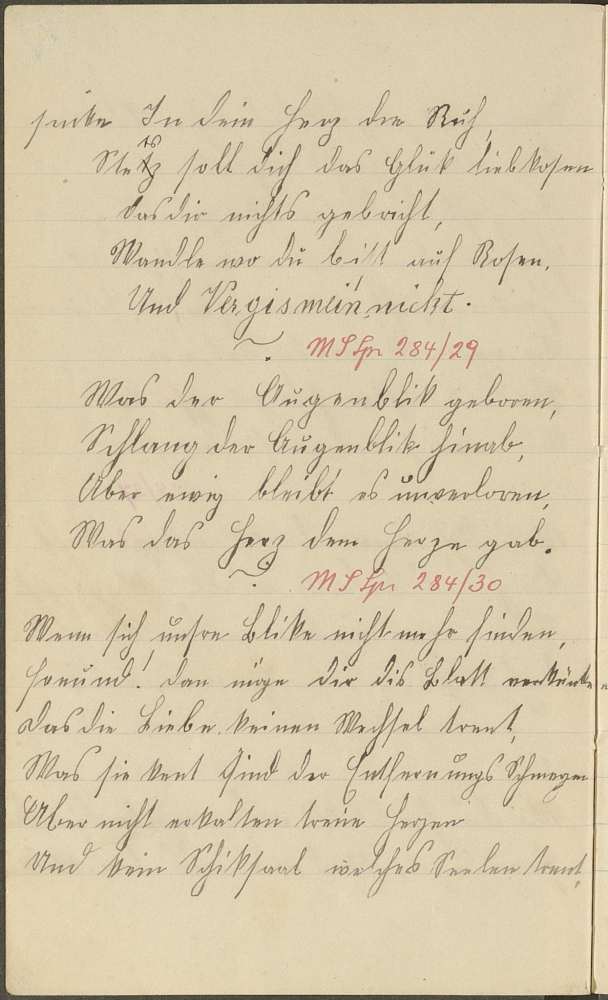 sinke In dein Herz die Ruh,
Stets soll dich das Glük liebkosen
das dir nichts gebricht,
Wandle wo du bist auf Rosen.
Und Vergismeinnicht.
MS Lpr 284/29
Was der Augenblik geboren,
Schlang der Augenblik hinab,
Aber ewig bleibt es unverloren,
Was das Herz dem Herzen gab.
MS Lpr 284/30
Wenn sich unsre Blike nicht mehr finden,
freund! dan möge dir dis Blatt verkünden
das die Liebe keinen Wechsel kent,
Was sie kent sind der Entfernungs Schmerzen
Aber nicht erkalten treue Herzen
Und kein Schiksaal welches Seelen trent,